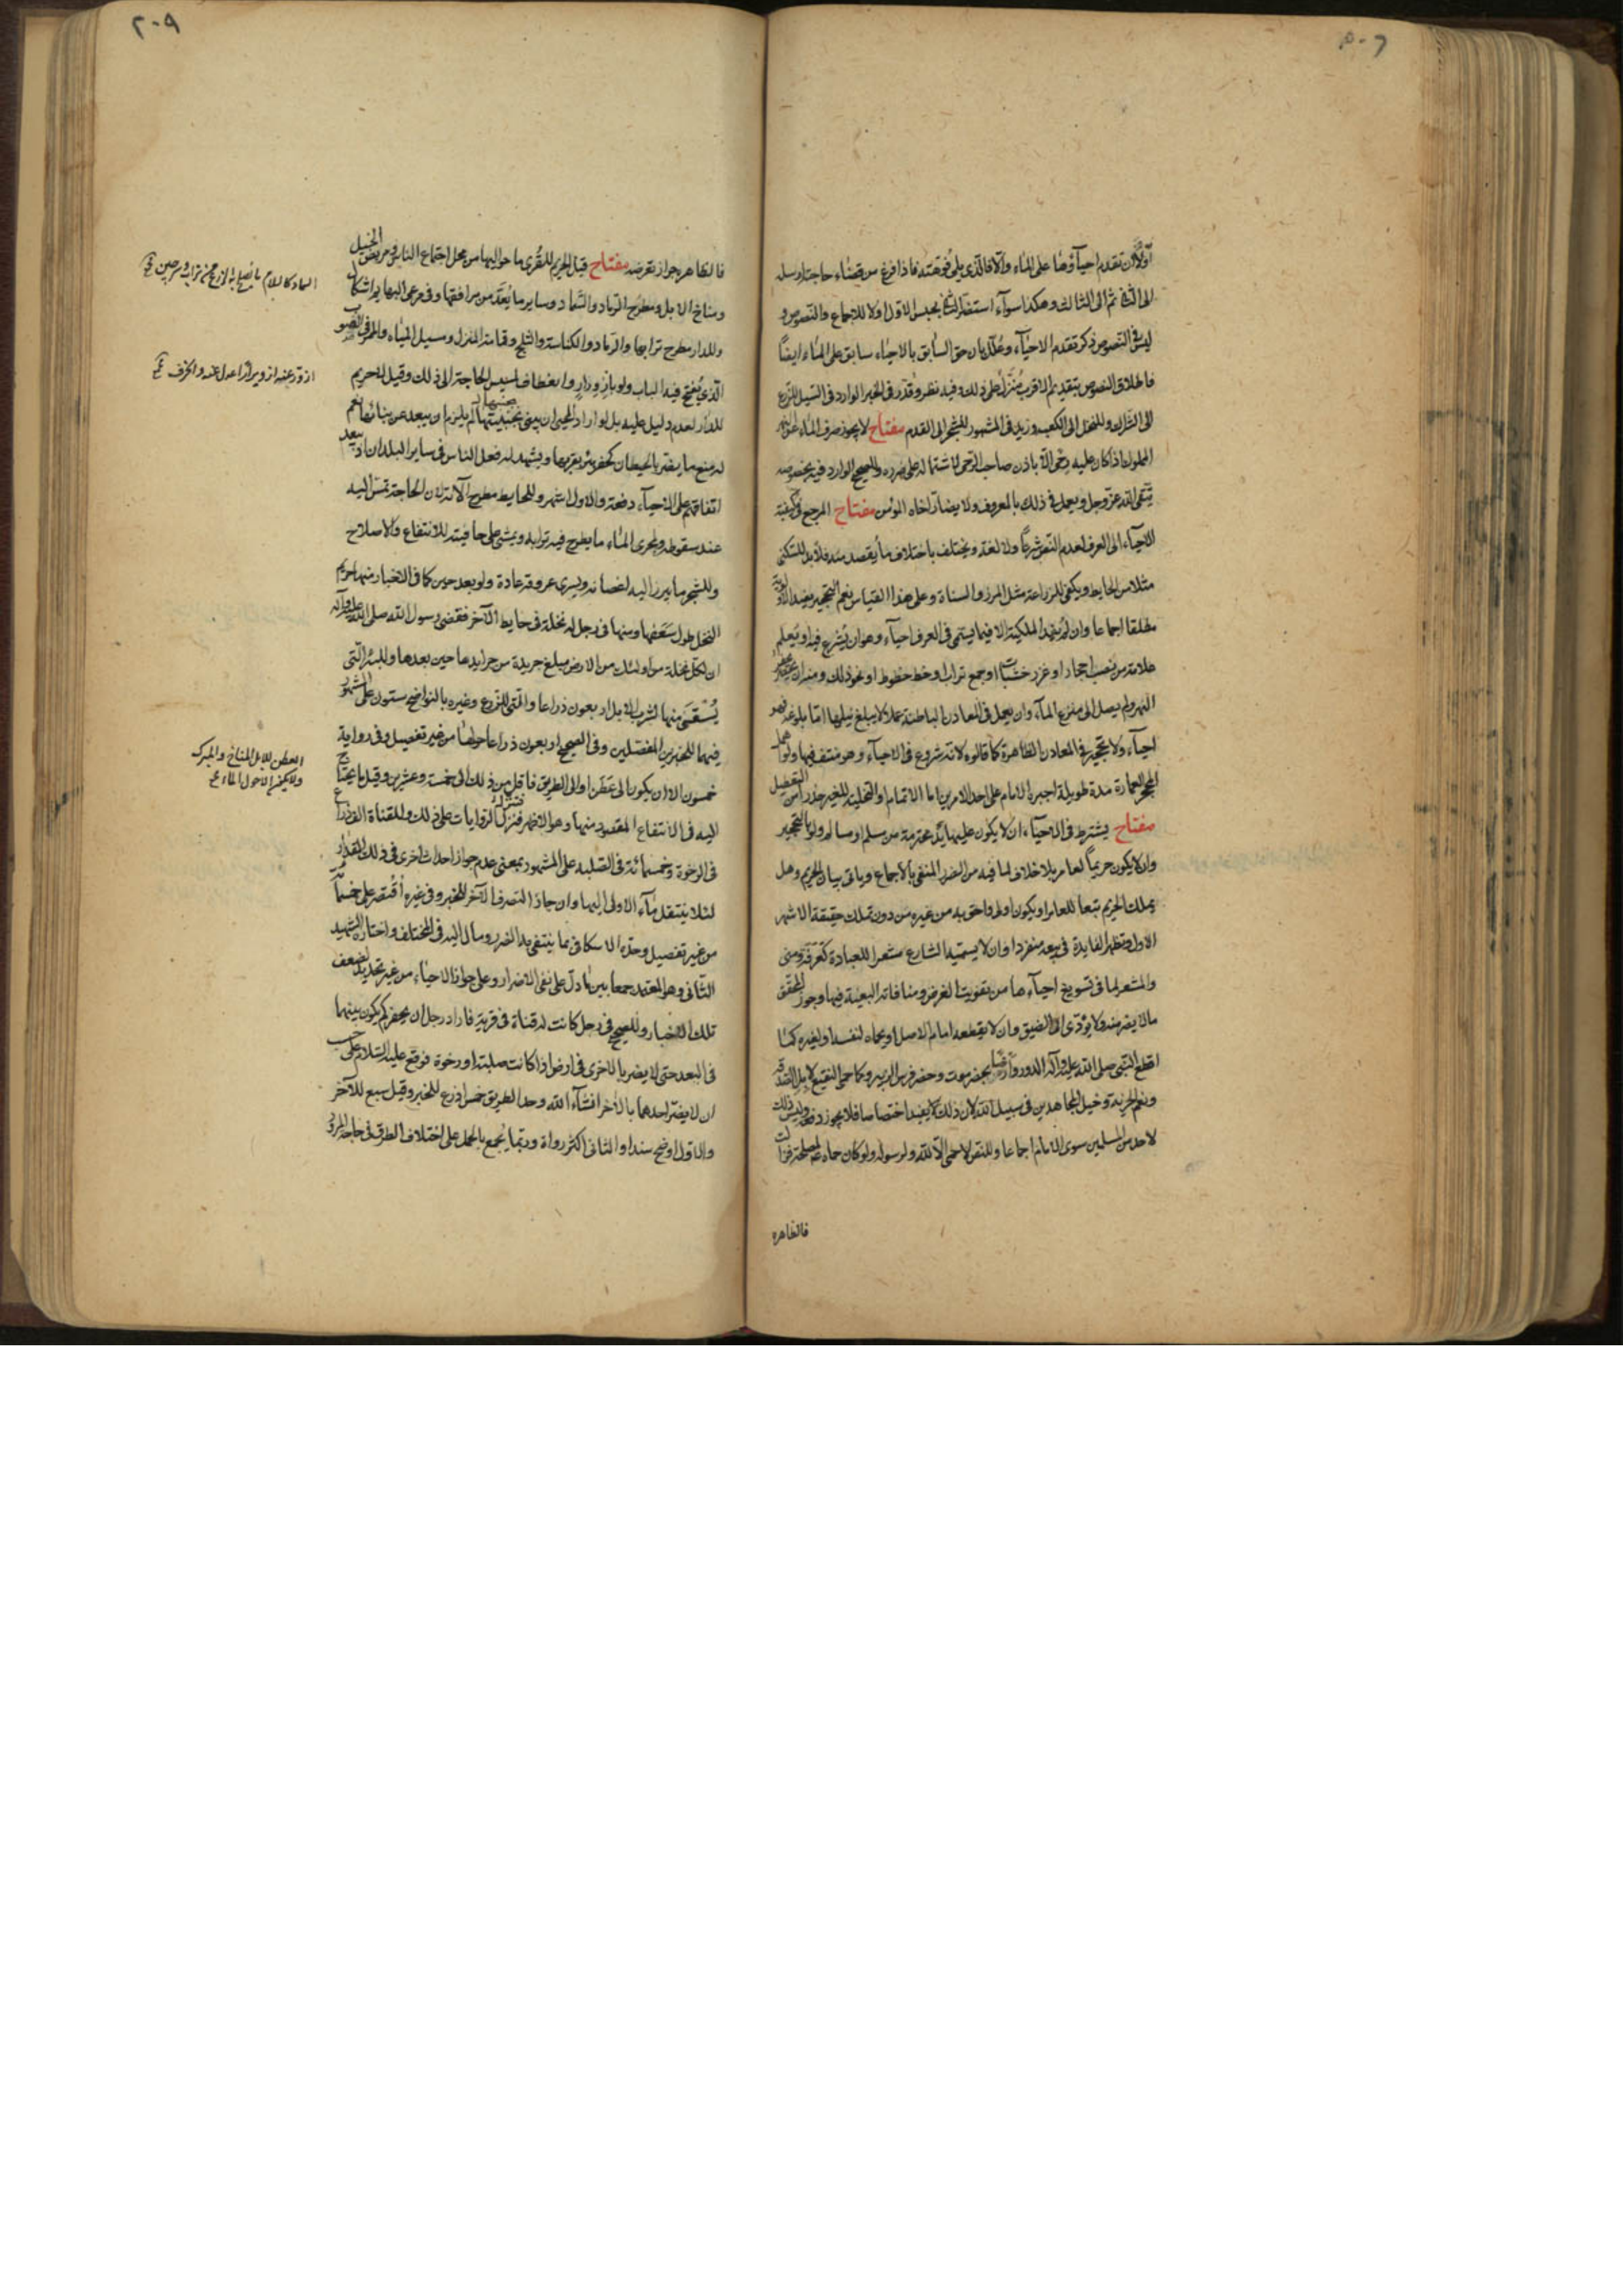 اولا ان تقدم احياؤها على الماء والا فالذي يلي فوهته فاذا فرغ من قضاء حاجته ارسله
الى الثاني ثم الى الثالث وهكذا سواء استضر الثاني بحبس الاول او لا للاجماع والنصوص و
ليس في النصوص ذكر تقدم الاحياء وعلل بان حق السابق بالاحياء سابق على الماء ايضا
فاطلاق النصوص بتقديم الاقرب منزل على ذلك وفيه نظر وقدر في الخبر الوارد في السيل للزرع
الى الشراك وللنخل الى الكعب وزيد في المشهور للشجر الى القدم مفتاح لا يجوز صرف الماء عن النهر
المملوك اذا كان عليه رحى الا باذن صاحب الرحى لاشتماله على ضرره وللصحيح الوارد فيه بخصوصه
يتقي الله عز وجل ويعمل في ذلك بالمعروف ولا يضار اخاه المؤمن مفتاح المرجع في كيفية
الاحياء الى العرف لعدم النص شرعا ولا لغة ويختلف باختلاف ما يقصد منه فلا بد للسكنى
مثلا من الحايط ويكفي للزراعة مثل المرز والمسناة وعلى هذا القياس نعم التحجير يفيد الاولوية
مطلقا اجماعا وان لم يفد الملكية الا فيما يسمى في العرف احياء وهو ان يشرع فيه او يعلم
علامة من نصب احجار او غرز خشبات او جمع تراب او خط خطوط او نحو ذلك ومنه ان يحفر
النهر ولم يصل الى منزع الماء وان يعمل في المعادن الباطنة عملا لا يبلغ نيلها اما بلوغه فهو
احياء ولا تحجير في المعادن الظاهرة كما قالوه لانه شروع في الاحياء وهو منتف فيها ولو اهمل
المحجر العمارة مدة طويلة اجبره الامام على احد الامرين اما الاتمام او التخلية للغير حذرا من التعطيل
مفتاح يشترط في الاحياء ان لا يكون عليها يد محترمة من مسلم او مسالم ولو بالتحجير
وان لا يكون حريما لعامر بلا خلاف لما فيه من الضرر المنفي بالاجماع وياتي بيان الحريم وهل
يملك الحريم تبعا للعامر او يكون اولى واحق به من غيره من دون تملك حقيقة الاشهر
الاول وتظهر الفايدة في بيعه منفردا وان لا يسميه الشارع مشعرا للعبادة كعرفة ومنى
والمشعر لما في تسويغ احياءها من تفويت الغرض ومنافاته البعيثة فيها وجوز المحقق
ما لا يضر منه ولا يؤدى الى الضيق وان لا يقطعه امام الاصل او يحماه لنفسه او لغيره كما
اقطع النبي صلى الله عليه وآله الدور وارضا بحضرموت وحضر فرس الزبير وكما حمى النقيع لابل الصدقة
ونعم الجزية وخيل المجاهدين في سبيل الله لان ذلك يفيد اختصاصا فلا يجوز دفعه وليس ذلك
لاحد من المسلمين سوى الامام اجماعا وللنص لا حمى الا لله ولرسوله ولو كان حماه لمصلحة فزالت
فالظاهره
٢٠٩
فالظاهره جواز نقضه مفتاح قيل الحريم للقرى ما حواليها من محل اجتماع الناس ومرتكض الخيل
ومناخ الابل ومطرح الرماد والسماد وساير ما يعد من مرافقها وفي مرعى البهايم اشكال
وللدار مطرح ترابها والرماد والكناسة والثلج وقمامة المنزل ومسيل المياه والممر في الصوب
الذي يفتح فيه الباب ولو بازورار وانعطاف لمسيس الحاجة الى ذلك وقيل لا حريم
للدار لعدم دليل عليه بل لو اراد المحيي ان يبني بجنبيتها لم يلزم ان يبعد عن بنائها نعم
له منع ما يضر بالحيطان كحفر بئر بقربها ويشهد له فعل الناس في ساير البلدان اذ يبعد
اتفاقهم على الاحياء دفعة والاول اشهر وللحايط مطرح آلاته لان الحاجة تمس اليه
عند سقوطه ولمجرى الماء ما يطرح فيه ترابه ويمشى على حافيته للانتفاع والاصلاح
وللشجر ما يبرز اليه اغصانه ويسرى عروقه عادة ولو بعد حين كما في الاخبار منها حريم
النخل طول سعفها ومنها في رجل له نخلة في حايط الآخر فقضى رسول الله صلى الله عليه وآله
ان لكل نخلة من اولئك من الارض مبلغ جريدة من جرايدها حين بعدها وللبئر التي
يستقى منها لشرب الابل اربعون ذراعا والتي للزرع وغيره بالنواضح ستون على المشهور
فيهما للخبرين المفصلين وفي الصحيح اربعون ذراعا حولها من غير تفصيل وفي رواية
خمسون الا ان يكون الى عطن او الى الطريق فاقل من ذلك الى خمسة وعشرين وقيل ما يحتاج
اليه في الانتفاع المقصود منها وهو الاظهر فتنزل الروايات على ذلك وللقناة الف ذراع
في الرخوة وخمسمائة في الصلبه على المشهور بمعنى عدم جواز احداث اخرى في ذلك المقدار
لئلا ينتقل ماء الاولى اليها وان جاز التصرف الآخر للخبر وفي غيره اقتصر على خمسمائة
من غير تفصيل وحده الاسكافي بما ينتفي به الضرر ومال اليه في المختلف واختاره الشهيد
الثاني وهو المعتمد جمعا بين ما دل على نفي الاضرار وعلى جواز الاحياء من غير تحديد لضعف
تلك الاخبار وللصحيح في رجل كانت له قناة في قرية فاراد رجل ان يحفر كم يكون بينهما
في البعد حتى لا يضر بالاخرى في ارض اذا كانت صلبة او رخوة فوقع عليه السلام على حسب
ان لا يضر احدهما بالآخر انشاء الله وحد الطريق خمس اذرع للخبر وقيل سبع للآخر
والاول اوضح سندا والثاني اكثر رواة وربما يجمع بالحمل على اختلاف الطرق في حاجة المرور
السماد كالسلام ما يصلح به الزرع من تراب وسرجين
ازور عنه ازويرارا عدل عنه وانحرف
العطن للابل المناخ والمبرك
ولا يكون الا حول الماء